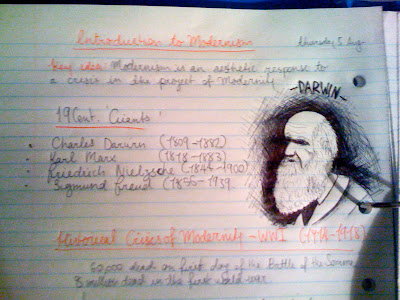 Introduction to Modernism
Thursday 5 Aug
Key idea: Modernism is an aesthetic response to
a crisis in the project of Modernity
-DARWIN-
19 Cent. 'Giants'
Charles Darwin (1809-1882)
Karl Marx (1818-1883)
Friedrich Nietzsche (1844-1900)
Sigmund Freud (1856-1939
Historical Crises of Modernity - WWI (1914-1918)
60,000 dead on first day of the Battle of the Somme
dead in the first world war